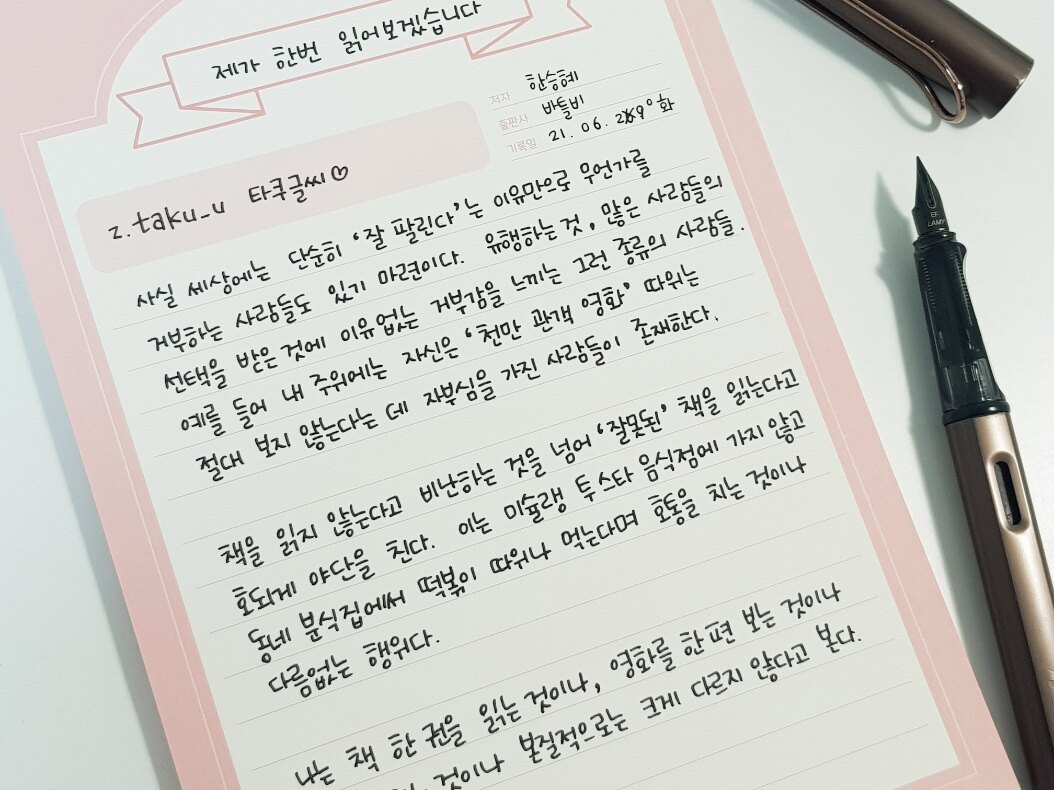 제가 한번 읽어보겠습니다
저자 한승혜
출판사 바틀비
기록일 21. 06. 29 화
z.taku_u 타쿠글씨♡
사실 세상에는 단순히 '잘 팔린다'는 이유만으로 무언가를
거부하는 사람들도 있기 마련이다. 유행하는 것, 많은 사람들의
선택을 받은 것에 이유없는 거부감을 느끼는 그런 종류의 사람들.
예를 들어 내 주위에는 자신은 '천만 관객 영화' 따위는
절대 보지 않는다는 데 자부심을 가진 사람들이 존재한다.
책을 읽지 않는다고 비난하는 것을 넘어 '잘못된' 책을 읽는다고
호되게 야단을 친다. 이는 미슐랭 투스타 음식점에 가지 않고
동네 분식집에서 떡볶이 따위나 먹는다며 호통을 치는 것이나
다름없는 행위다.
나는 책 한 권을 읽는 것이나, 영화를 한 편 보는 것이나
것이나 본질적으로는 크게 다르지 않다고 본다.
EF
LAMY